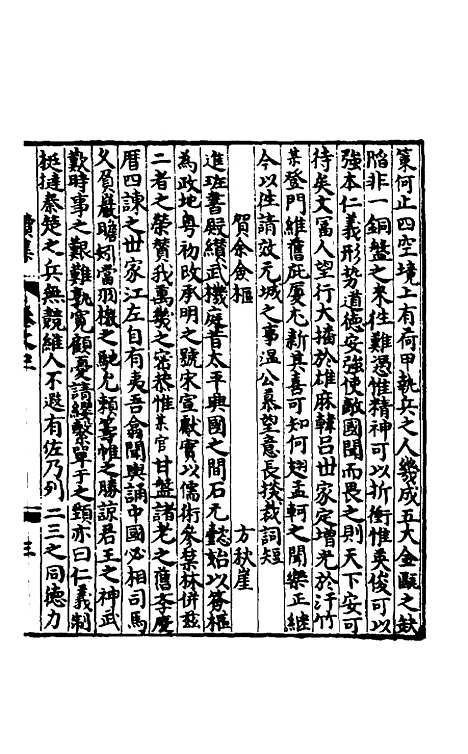 策何止四空境上有荷甲執兵之人幾成五大金甌之缺
陷非一銅盤之來往難憑惟精神可以折衝惟英俊可以
強本仁義形勢道德安強使敵國聞而畏之則天下安可
待矣文冨人望行大播於雄麻韓吕世家定增光於汗竹
某登門維舊庇厦尤新其喜可知何翅孟軻之聞樂正継
今以徃請效元城之事温公慕望意長掞裁詞短
賀余僉樞　方秋崖
進班書殿續武機庭昔太平興國之間石元懿始以簽樞
為政地粤初改承明之號宋宣獻實以儒術參棨林併兹
二者之榮賛我萬幾之密恭惟某官甘盤諸老之舊李慶
曆四諫之丗家江左自有夷吾翕聞輿誦中國必相司馬
乂負巖瞻蚓當羽檄之馳尤頼籌帷之勝諒君王之神武
歎時事之艱難孰寛顧憂請纓繫單于之頸亦曰仁義制
挺撻秦楚之兵無競維人不遐有佐乃列二三之同德力